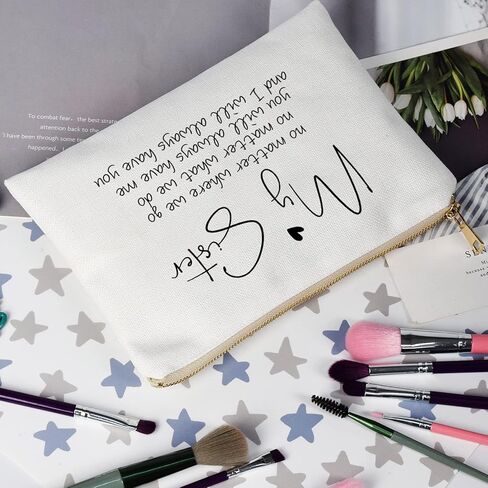 My Sister
no matter where we go
no matter what we do
you will always have me
and I will always have you
To combat fear, the best
attention back to the
been through some
because